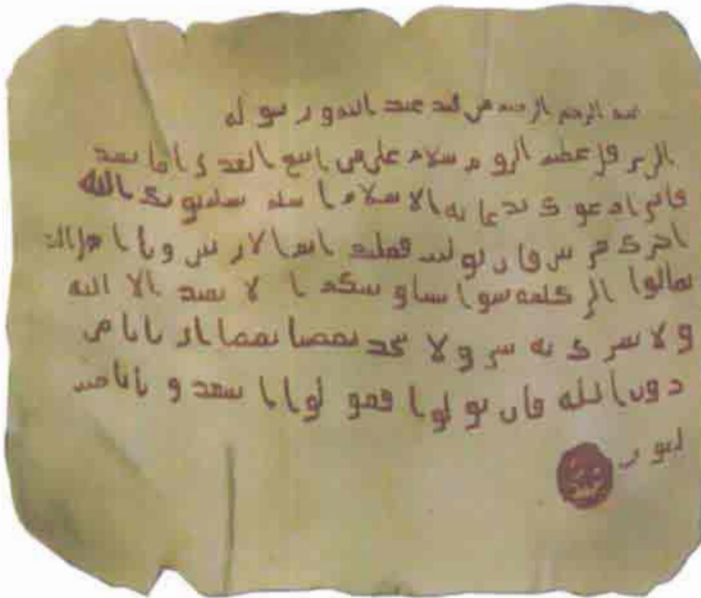 بسم الله الرحمن الرحيم من محمد عبد الله ورسوله
الى هرقل عظيم الروم سلام على من اتبع الهدى اما بعد
فانى ادعوك بدعاية الاسلام اسلم تسلم يوتك الله
اجرك مرتين فان توليت فعليك اثم الاريسين ويا اهل الكتاب
تعالوا الى كلمة سوا بيننا وبينكم ا لا نعبد الا الله
ولا نشرك به شى ولا يتخد بعضنا بعضا اربابا من
دون الله فان تولوا فقولوا اشهدوا بانا مسـ
لمون